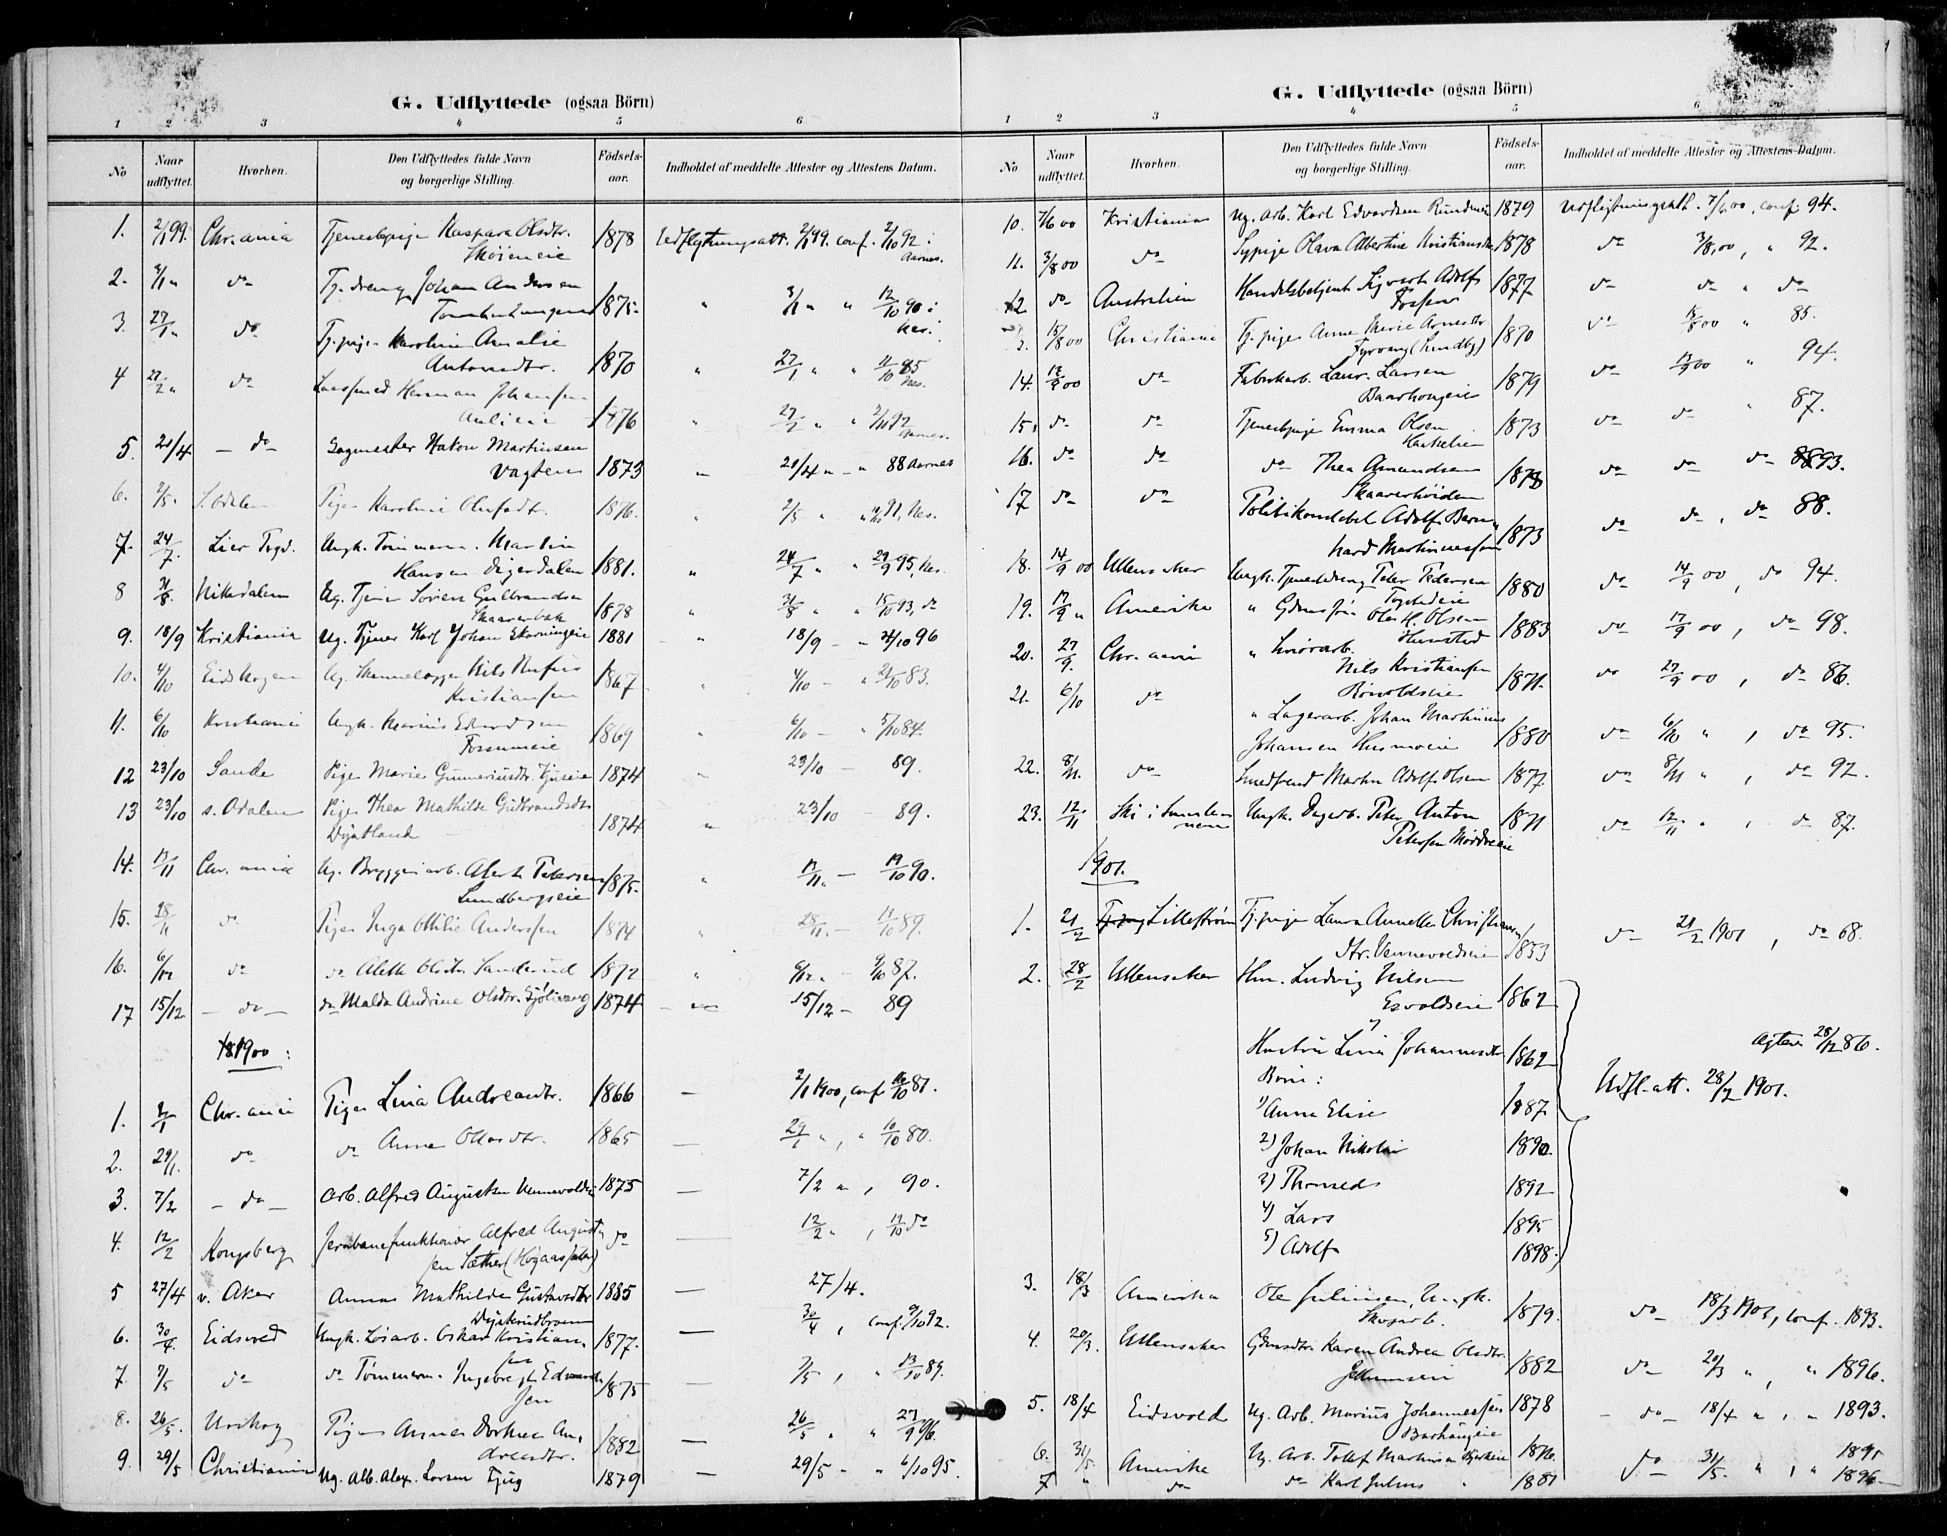 G. Udflyttede (ogsaa Börn)
1 2 3 4 5 6
No Naar udflyttet. Hvorhen. Den Udflyttedes fulde Navn og borgerlige Stilling. Födsels-aar. Indholdet af meddelte Attester og Attestens Datum.
1. 2/1 99. Chr.ania Tjenestepige Kaspara Olsdtr. 1878 Udflytningsatt. 2/1 99. conf. 2/10 92 i
Skøieneie Aarnes.
2. 3/1 " do Tj.dreng Johan Andersen 1875 " 3/1 " " 12/10 90 i
Nes.
3. 27/1 " do Tj.pige Karoline Amalie
Antonsdtr. 1870 " 27/1 " " 11/10 85
Nes.
4 27/2 " do Herman Johansen
1876 " 27/2 " " 2/10 92
Aarnes.
5. 20/4 — do Sagmester Hakon Martinsen
Vagten 1873 " 20/4 " — " 88 Aarnes
6. 2/5. S. Odalen Pige Karoline Olufsdt. 1876. " 2/5 " " 91, Nes.
7. 24/7. Lier Ungk. Tømmerm. Martin
Hansen Digerdalen 1881. " 24/7 " " 29/9 95, Nes.
8 31/8. Nittedalen Ug. Tjener Søren Gulbrandsen
Skaarerbak 1878 " 31/8 " " 15/10 93, do
9. 18/9 Kristiania Ug. Tjener Karl Johan 1881 — " 18/9 — " 4/10 96
10. 4/10 Eidskogen Ug. Nils Rufus
Kristiansen 1867 " 4/10 — " 21/10 83.
11. 6/10 Kristiania Ungk. Marius Edvardsen
Fossumeie 1869 " 6/10 — " 5/10 84.
12 23/10 Sande Pige Marie Gunneriusdtr. 1874 " 23/10 — 89.
13 23/10 s. Odalen Pige Thea Mathilde Gudbrandsdtr
1874 " 23/10 — 89.
14. 13/11 Chr. ania Ug. Bryggeriarb. Albert Petersen
Lundbergseie 1875. " 13/11. — 19/10 90.
15. 28/11 do Pige Inga Otilie Andersen 1874 " 28/11. — 13/10 89.
16. 6/12 do do Alette Olsdtr. Sanderud 1872 " 6/12. — 9/10 87.
17 15/12 — do — do Malda Andrine Olsdtr. 1874 — " — 15/12 — 89
1900:
1. 2/1 Chr. ania Pige Lina Andreasdtr. 1866 — 2/1 1900, conf 16/10 81.
2. 29/1. do do Anna Olsdtr. 1865 — 29/1 ", " 10/10 80.
3. 7/2 — do — Arb. Alfred Augustsen 1875 — 7/2 ", 90.
4. 12/2 Kongsberg Jernbanefunktionær Alfred August
sen Sæther do 12/2 ", 12/10 do
5 27/4 v. Aker Anna Mathilde Gustavsdtr 1885 — 27/4.
6. 30/4. Eidsvold Ungk. Løsarb. Oskar Kristian
sen 1877. — 30/4, conf 9/10 92.
7. 7/5 do do Tømmerm. Ingebregt Edvard
sen 1875 — 7/5, " 13/10 89.
8. 26/5. Urskog Pige Anna Dorthea An,
dreasdtr. 1882 — 26/5 " " 27/9 96.
9. 29/5 Christiania Ug. Arb. Alex. Larsen Tjug 1879 — 29/5 — " 6/10 95.
G. Udflyttede (ogsaa Börn)
1 2 3 4 5 6
No Naar udflyttet. Hvorhen. Den Udflyttedes fulde Navn og borgerlige Stilling. Födsels-aar. Indholdet af meddelte Attester og Attestens Datum.
10. 7/6 00 Kristiania Ug. Arb. Karl Edvardsen 1879 Udflytningsatt. 7/6 00, conf. 94.
11. 3/8 00 do Sypige Olava Albertine Kristiansdtr. 1878 do 3/8 00, " 92.
12 do Australien Handelsbetjent Sigvart Adolf
1877 do do " do
15/8 00 Christiania Tj.pige Anne Marie Arnesdtr.
(Lundby) 1870 do 15/8 00 " 85.
14. 13/9 00 do Fabrikarb. Laur. Larsen
Baarhougeie 1879 do 13/9 00 " 94.
15. do do Tjenestepige Emma Olsen
1873 do do " 87.
16. do do do Thea Amundsen
Skaarerhøiden 1878 do do do 93.
17 do do Politikonstabel Adolf Bern,
hard Martiniussen 1873 do do, do 88.
18. 14/9 00 Ullensaker Ungk. Tjenestdreng Peter Pedersen
1880 do 14/9 00, do 94.
19. 17/9 " Amerika " Gdmssøn Ole H. Olsen
1883 do 17/9 00, do 98.
20. 27/9. Chr. ania "
Nils Kristiansen 1871. do 27/9 00, do 86.
21. 6/10 do " Lagerarb. Johan Martinius
Johansen Husmoeie 1880 do 6/10 ", do 95.
22. 8/11. do Smedsvend Martin Adolf Olsen 1877 do 8/11 ", do 92.
23. 12/11 Ski i Ungk. Dagarb. Peter Anton
Petersen 1871 do 12/11 ", do 87.
1901.
1. 21/2 Lillestrøm Tj.pige Laura Annette Christians
dtr. Vennevoldseie 1853 do 21/2 1901, do 68.
2. 28/2 Ullensaker Hm. Ludvig Nilsen
1862
Hustru Lina Johannesdtr 1862 Ægtev. 28/12 86.
Børn: Udfl.-att. 28/2 1901.
1) Anna Elise 1887
2) Johan Nikolai 1890
3) Thorvald 1892
4) Lars 1895
5) Adolf 1898
3. 18/3 Amerika Ole Julinsen, Ungk.
Skogarb. 1879. do 18/3 1901, conf. 1893.
4. 20/3. Ullensaker Gdmsdtr. Karen Andrea Olsdtr.
1882 do 20/3 ", " 1896.
5. 18/4 Eidsvold Ug. Arb. Marius Johannessen 1878 — do — 18/4 ", " 1893.
Barhaugeie
6. 31/5. Amerika Ug. Arb. Tollef Martinsen 1876. do 31/5. ", " 1891
7 " do do Karl Julius " 1881 1896